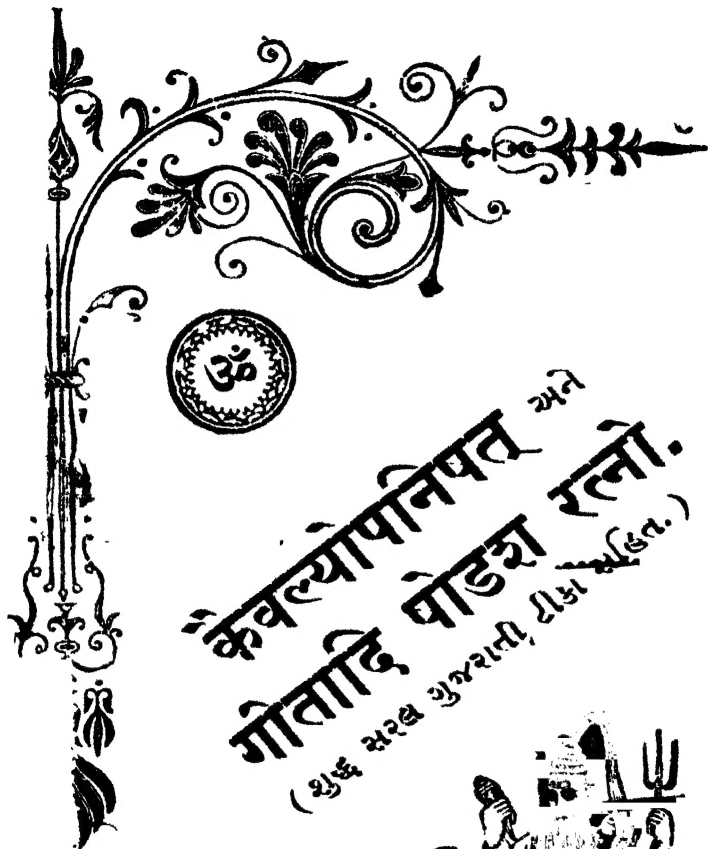 ॐ
कैवल्योपनिषत् અને
गीतादि षोडश रत्नो.
(શુદ્ધ સરલ ગુજરાતી, ટીકા સહિત.)